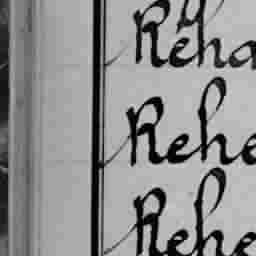 Reha
Rehe
Rehe